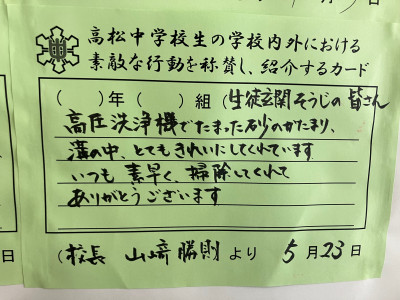 高松中学校生の学校内外における
素敵な行動を称賛し、紹介するカード
(　)年(　)組(生徒玄関そうじの皆さん
高圧洗浄機でたまった砂のかたまり、
溝の中、とてもきれいにしてくれています
いつも素早く、掃除してくれて
ありがとうございます
(校長 山﨑勝則より 5月23日
日
日